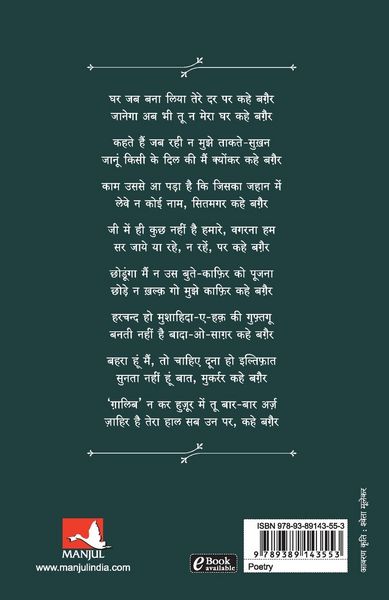 घर जब बना लिया तेरे दर पर कहे बग़ैर
जानेगा अब भी तू न मेरा घर कहे बग़ैर
कहते हैं जब रही न मुझे ताकते-सुख़न
जानूं किसी के दिल की मैं क्योंकर कहे बग़ैर
काम उससे आ पड़ा है कि जिसका जहान में
लेवे न कोई नाम, सितमगर कहे बग़ैर
जी में ही कुछ नहीं है हमारे, वगरना हम
सर जाये या रहे, न रहें, पर कहे बग़ैर
छोडूंगा मैं न उस बुते-काफ़िर को पूजना
छोड़े न ख़ल्क़ गो मुझे काफ़िर कहे बग़ैर
हरचन्द हो मुशाहिदा-ए-हक़ की गुफ़्तगू
बनती नहीं है बादा-ओ-साग़र कहे बग़ैर
बहरा हूं मैं, तो चाहिए दूना हो इल्तिफ़ात
सुनता नहीं हूं बात, मुकर्रर कहे बग़ैर
'ग़ालिब' न कर हुज़ूर में तू बार-बार अर्ज़
ज़ाहिर है तेरा हाल सब उन पर, कहे बग़ैर
MANJUL
www.manjulindia.com
eBook
available
ISBN 978-93-89143-55-3
9 789389 143553
Poetry
आवरण कृति : श्वेता मूलेकर